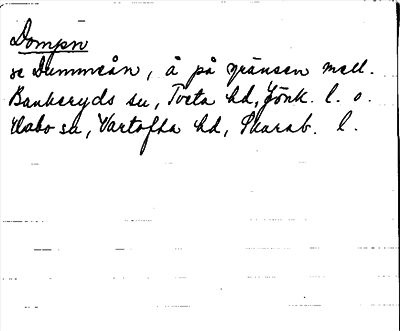 Dompn
se Dummeån, å på gränsen mell.
Bankeryds sn, Tveta hd, Jönk. l. o.
Habo sn, Vartofta hd, Skarab. l.